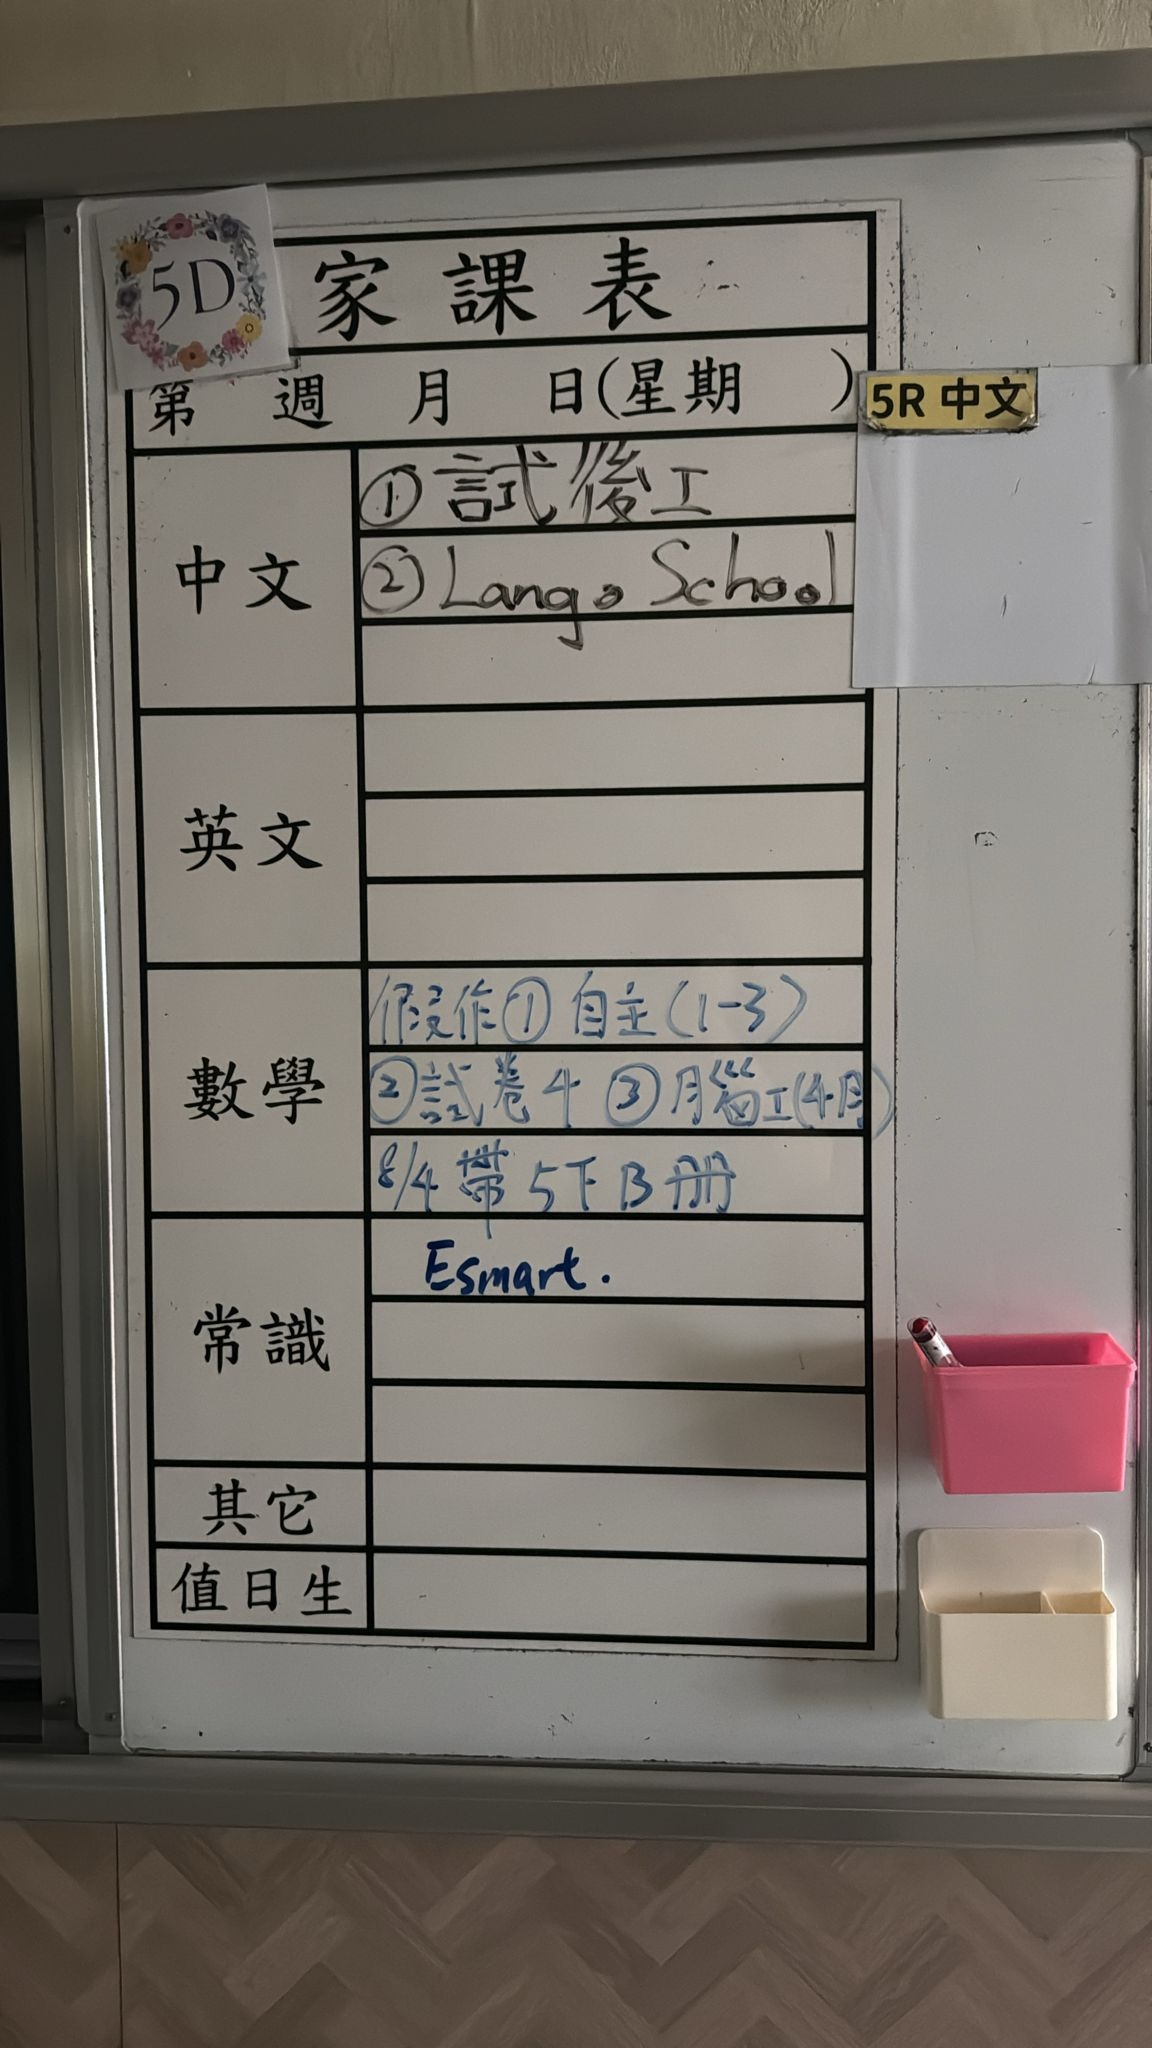 5D
家課表
第 週 月 日(星期 )
5R 中文
中文
①試後工
②Lang。School
英文
數學
假作①自主(1-3)
②試卷4 ③月腦工(4月)
8/4 帶5下B冊
常識
Esmart.
其它
值日生